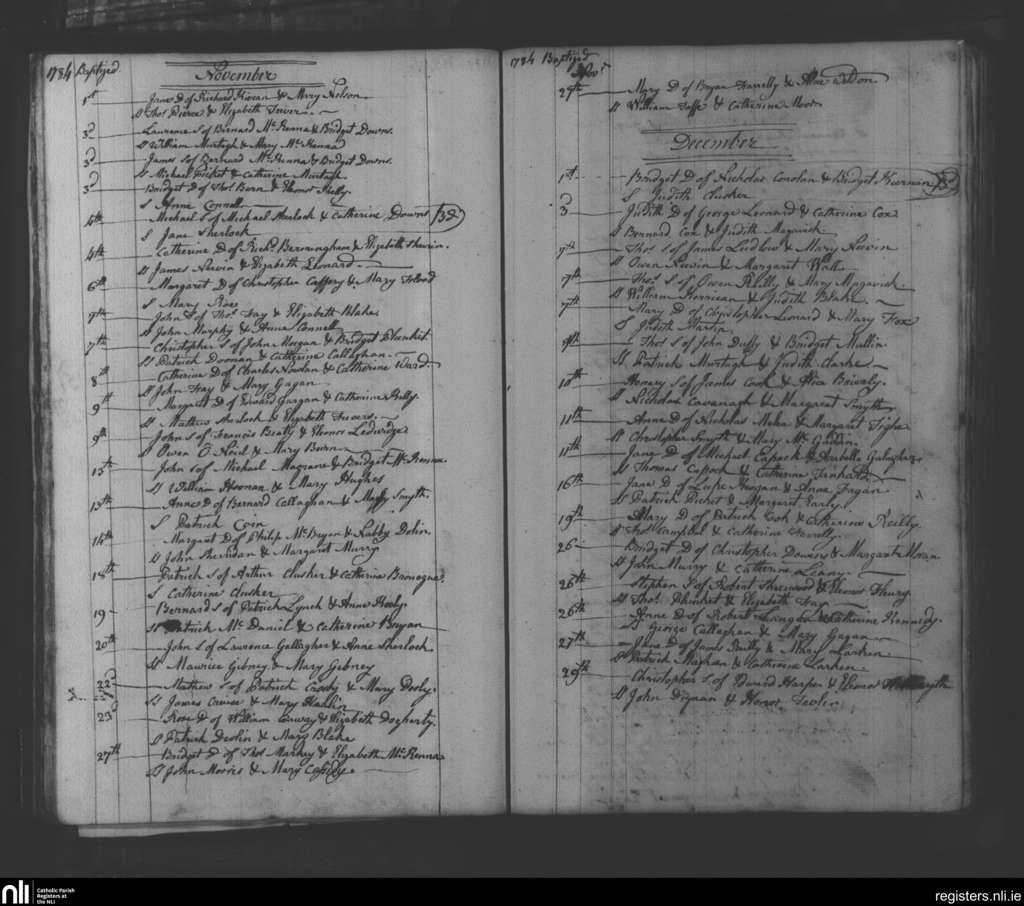 1784 Baptized
November
1st Jane D of Richard Kiernan & Mary Nelson
Ss Thos Pierce & Elizabeth
3d Laurence S of Bernard McKenna & Bridget Downs.
Ss William Murtagh & Mary McKenna
3d James S of Bernard McKenna & Bridget Downs.
Ss Michael & Catherine Murtagh
3d Bridget D of Thos Burn & Elenor Kelly.
S Anne Connell
4th Michael S of Michael Sherlock & Catherine Downs
S Jane Sherlock
4th Catherine D of Richd Bermingham & Elizabeth
Ss James & Elizabeth Leonard
6th Margaret D of Christopher Caffery & Mary
S Mary Roe
7th John S of Thos Fay & Elizabeth Blake
Ss John Murphy & Anne Connell
7th Christopher S of John Morgan & Bridget Plunket.
Ss Patrick Doonan & Catherine Callaghan.
8th Catherine D of Charles Nowlan & Catherine Ward.
Ss John Fay & Mary Gagan
9th Margaret D of Edward Gargan & Catherine Kelly.
Ss Mathew Sherlock & Elizabeth
9th John S of Francis Beaty & Elenor Ledwidge
Ss Owen O Neil & Mary Burn
13th John S of Michael & Bridget McKenna
Ss William Hoonan & Mary Hughes
13th Anne D of Bernard Callaghan & Smyth.
S Patrick Coin
14th Margaret D of Philip McBryen & Kitty
Ss John Sheridan & Margaret Murry
18th Patrick S of Arthur Clusker & Catherine
S Catherine Clusker
19 Bernard S of Patrick Lynch & Anne Healy.
Ss Patrick McDaniel & Catherine Bryan
20th John S of Laurence Gallagher & Anne Sherlock
Ss Maurice Gibney & Mary Gibney
22d Mathew S of Patrick Cassdy & Mary Dooly.
Ss James & Mary
23d Rose D of William Conway & Elizabeth Dogherty.
Ss Patrick Devlin & Mary Blake
27th Bridget D of Thos Markey & Elizabeth McKenna
Ss John Morris & Mary Cassidy
1784 Baptized
Novr
27th Mary D of Bryan Farrelly & Anne Weldon
Ss William Taffe & Catherine Moor
December
1st Bridget D of Nicholas Conolan & Bridget Kiernan
S Judith Clusker
3 Judith D of George Leonard & Catherine Cox
Ss Bernard Cox & Judith
7th Thos S of James Ludlow & Mary
Ss Owen & Margaret Wall
7th Thos S of Owen Reilly & Mary
Ss William Kerrican & Judith Blake
7th Mary D of Christopher Leonard & Mary Fox
S Judith Martin
9th Thos S of John Duffy & Bridget Mullin
Ss Patrick Murtagh & Judith Clarke
10th Henery S of James Cook & Alice
Ss Nicholas Cavanagh & Margaret Smyth
11th Anne D of Nicholas & Margaret Tighe
Ss Christopher Smyth & Mary
11th Jane D of Michael Capock & Arabella Galaghar
Ss Thomas Capock & Catherine
16th Jane D of Luke Hoagan & Anne Fagan.
Ss Patrick & Margaret Early
19th Mary D of Patrick Cook & Catherine Reilly.
Ss Thos Campbel & Catherine Farrelly.
26 Bridget D of Christopher Downs & Margaret Moran
Ss John Murry & Catherine Leary
26th Stephen S of Robert Sherwood & Elenor Fleury.
Ss Thos Plunket & Elizabeth Fay
26th Anne D of Robert Langan & Catherine Kennedy.
Ss George Callaghan & Mary Gagan
27th Jane D of James Reilly & Mary Larken
Ss Patrick & Catherine Larken
29th Christopher S of Edward Harper & Elenor Smyth
Ss John Dignan & Honor Devlin
nli
Catholic Parish
Registers at
the NLI
registers.nli.ie